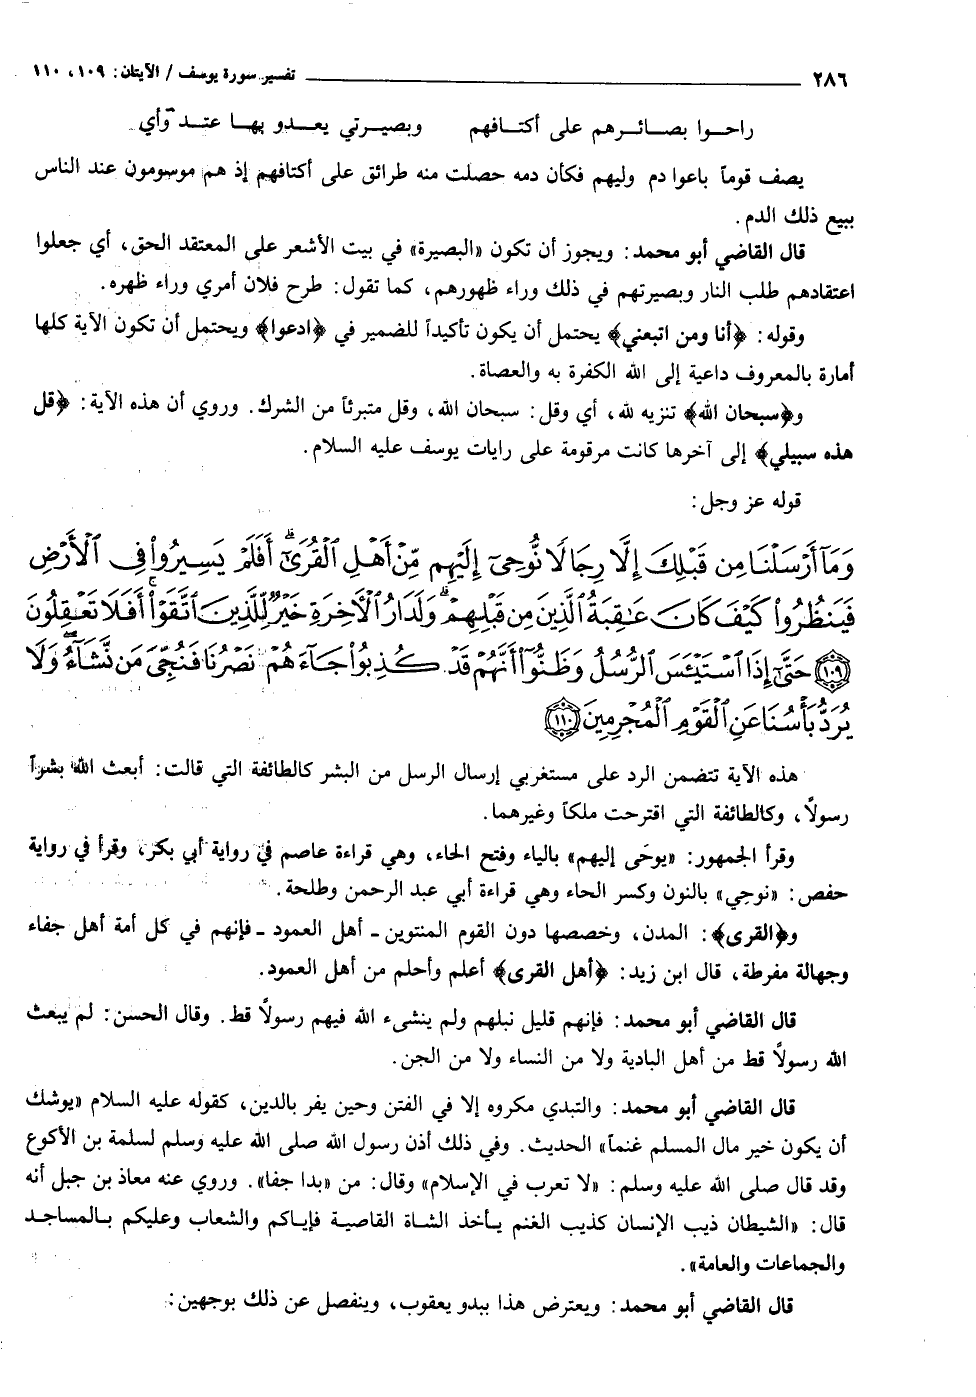 ٢٨٦ تفسير سورة يوسف / الآيتان: ١٠٩، ١١٠
راحـوا بصـائـرهم على أكتـافهم وبصيـرتي يعـدو بهـا عتـد وأي
يصف قوماً باعوا دم وليهم فكأن دمه حصلت منه طرائق على أكتافهم إذ هم موسومون عند الناس
ببيع ذلك الدم.
قال القاضي أبو محمد: ويجوز أن تكون «البصيرة» في بيت الأشعر على المعتقد الحق، أي جعلوا
اعتقادهم طلب النار وبصيرتهم في ذلك وراء ظهورهم، كما تقول: طرح فلان أمري وراء ظهره.
وقوله: ﴿أنا ومن اتبعني﴾ يحتمل أن يكون تأكيداً للضمير في ﴿ادعوا﴾ ويحتمل أن تكون الآية كلها
أمارة بالمعروف داعية إلى الله الكفرة به والعصاة.
و﴿سبحان الله﴾ تنزيه لله، أي وقل: سبحان الله، وقل متبرئاً من الشرك. وروي أن هذه الآية: ﴿قل
هذه سبيلي﴾ إلى آخرها كانت مرقومة على رايات يوسف عليه السلام.
قوله عز وجل:
وَمَآ أَرْسَلْنَا مِن قَبْلِكَ إِلَّا رِجَالًا نُّوحِىٓ إِلَيْهِم مِّنْ أَهْلِ ٱلْقُرَىٰٓ ۗ أَفَلَمْ يَسِيرُوا۟ فِى ٱلْأَرْضِ
فَيَنظُرُوا۟ كَيْفَ كَانَ عَـٰقِبَةُ ٱلَّذِينَ مِن قَبْلِهِمْ ۗ وَلَدَارُ ٱلْـَٔاخِرَةِ خَيْرٌ لِّلَّذِينَ ٱتَّقَوْا۟ ۗ أَفَلَا تَعْقِلُونَ
﴿١٠٩﴾ حَتَّىٰٓ إِذَا ٱسْتَيْـَٔسَ ٱلرُّسُلُ وَظَنُّوٓا۟ أَنَّهُمْ قَدْ كُذِبُوا۟ جَآءَهُمْ نَصْرُنَا فَنُجِّىَ مَن نَّشَآءُ ۖ وَلَا
يُرَدُّ بَأْسُنَا عَنِ ٱلْقَوْمِ ٱلْمُجْرِمِينَ ﴿١١٠﴾
هذه الآية تتضمن الرد على مستغربي إرسال الرسل من البشر كالطائفة التي قالت: أبعث الله بشراً
رسولاً، وكالطائفة التي اقترحت ملكاً وغيرهما.
وقرأ الجمهور: «يوحَى إليهم» بالياء وفتح الحاء، وهي قراءة عاصم في رواية أبي بكر، وقرأ في رواية
حفص: «نوحِي» بالنون وكسر الحاء وهي قراءة أبي عبد الرحمن وطلحة.
و﴿القرى﴾: المدن، وخصصها دون القوم المنتوين ـ أهل العمود ـ فإنهم في كل أمة أهل جفاء
وجهالة مفرطة، قال ابن زيد: ﴿أهل القرى﴾ أعلم وأحلم من أهل العمود.
قال القاضي أبو محمد: فإنهم قليل نبلهم ولم ينشىء الله فيهم رسولاً قط. وقال الحسن: لم يبعث
الله رسولاً قط من أهل البادية ولا من النساء ولا من الجن.
قال القاضي أبو محمد: والتبدي مكروه إلا في الفتن وحين يفر بالدين، كقوله عليه السلام «يوشك
أن يكون خير مال المسلم غنماً» الحديث. وفي ذلك أذن رسول الله صلى الله عليه وسلم لسلمة بن الأكوع
وقد قال صلى الله عليه وسلم: «لا تعرب في الإسلام» وقال: من «بدا جفا». وروي عنه معاذ بن جبل أنه
قال: «الشيطان ذيب الإنسان كذيب الغنم يـأخذ الشـاة القاصيـة فإيـاكم والشعاب وعليكم بـالمساجـد
والجماعات والعامة».
قال القاضي أبو محمد: ويعترض هذا ببدو يعقوب، وينفصل عن ذلك بوجهين: